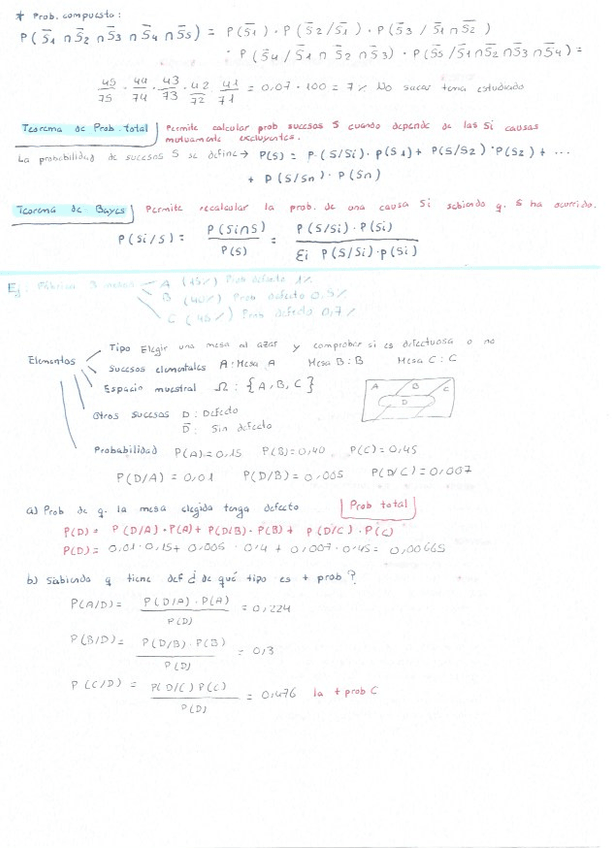 * Prob. compuesto:
P(S̄1 ∩ S̄2 ∩ S̄3 ∩ S̄4 ∩ S̄5) = P(S̄1) · P(S̄2/S̄1) · P(S̄3 / S̄1 ∩ S̄2)
· P(S̄4 / S̄1 ∩ S̄2 ∩ S̄3) · P(S̄5 / S̄1 ∩ S̄2 ∩ S̄3 ∩ S̄4) =
45/75 · 44/74 · 43/73 · 42/72 · 41/71 = 0,07 · 100 = 7% No sacar tema estudiado
Teorema de Prob. total Permite calcular prob sucesos S cuando depende de las Si causas
mutuamente excluyentes.
La probabilidad de sucesos S se define → P(S) = P(S/S1) · P(S1) + P(S/S2) · P(S2) + ...
+ P(S/Sn) · P(Sn)
Teorema de Bayes Permite recalcular la prob. de una causa Si sabiendo q. S ha ocurrido.
P(Si/S) = P(Si∩S) / P(S) = P(S/Si) · P(Si) / Ei P(S/Si) · P(Si)
Ej: Fábrica 3 mesas A (15%) Prob defecto 1%
B (40%) Prob defecto 0,5%
C (45%) Prob defecto 0,7%
Elementos
Tipo Elegir una mesa al azar y comprobar si es defectuosa o no
Sucesos elementales A: Mesa A Mesa B: B Mesa C: C
Espacio muestral Ω: {A, B, C}
A B C
D
Otros sucesos D: Defecto
D̄: Sin defecto
Probabilidad P(A)=0,15 P(B)=0,40 P(C)=0,45
P(D/A) = 0,01 P(D/B) = 0,005 P(D/C) = 0,007
a) Prob de q. la mesa elegida tenga defecto Prob total
P(D) = P(D/A) · P(A) + P(D/B) · P(B) + P(D/C) · P(C)
P(D) = 0,01 · 0,15 + 0,005 · 0,4 + 0,007 · 0,45 = 0,00665
b) Sabiendo q tiene def ¿de qué tipo es + prob?
P(A/D) = P(D/A) · P(A) / P(D) = 0,224
P(B/D) = P(D/B) · P(B) / P(D) = 0,3
P(C/D) = P(D/C) P(C) / P(D) = 0,476 la + prob C